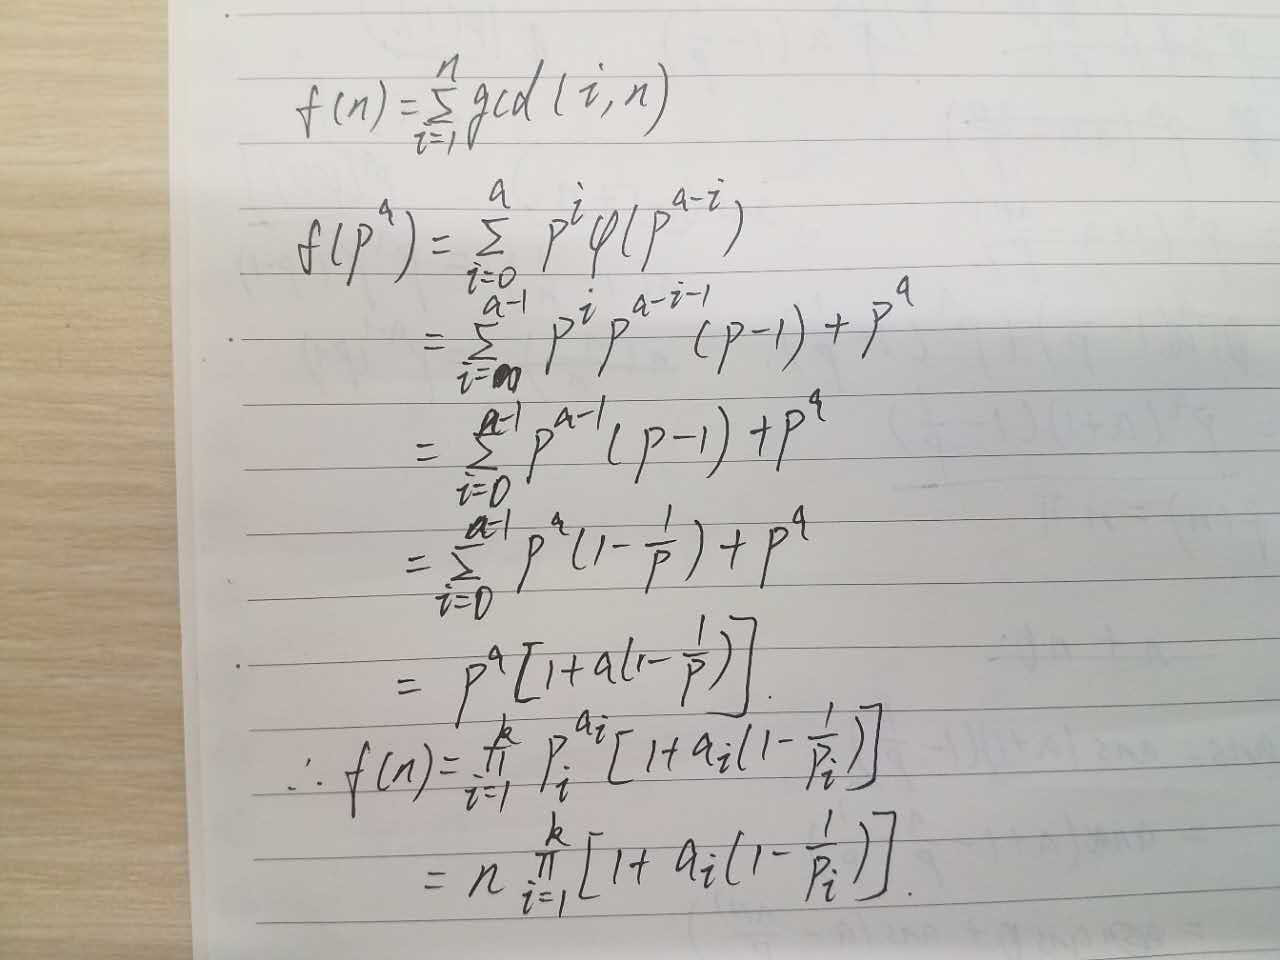 f(n) = \sum_{i=1}^{n} gcd(i, n)
f(p^a) = \sum_{i=0}^{a} p^i φ(p^{a-i})
= \sum_{i=0}^{a-1} p^i p^{a-i-1} (p-1) + p^a
= \sum_{i=0}^{a-1} p^{a-1} (p-1) + p^a
= \sum_{i=0}^{a-1} p^a (1 - \frac{1}{p}) + p^a
= p^a [1 + a(1 - \frac{1}{p})].
∴ f(n) = \prod_{i=1}^{k} p_i^{a_i} [1 + a_i(1 - \frac{1}{p_i})]
= n \prod_{i=1}^{k} [1 + a_i(1 - \frac{1}{p_i})].